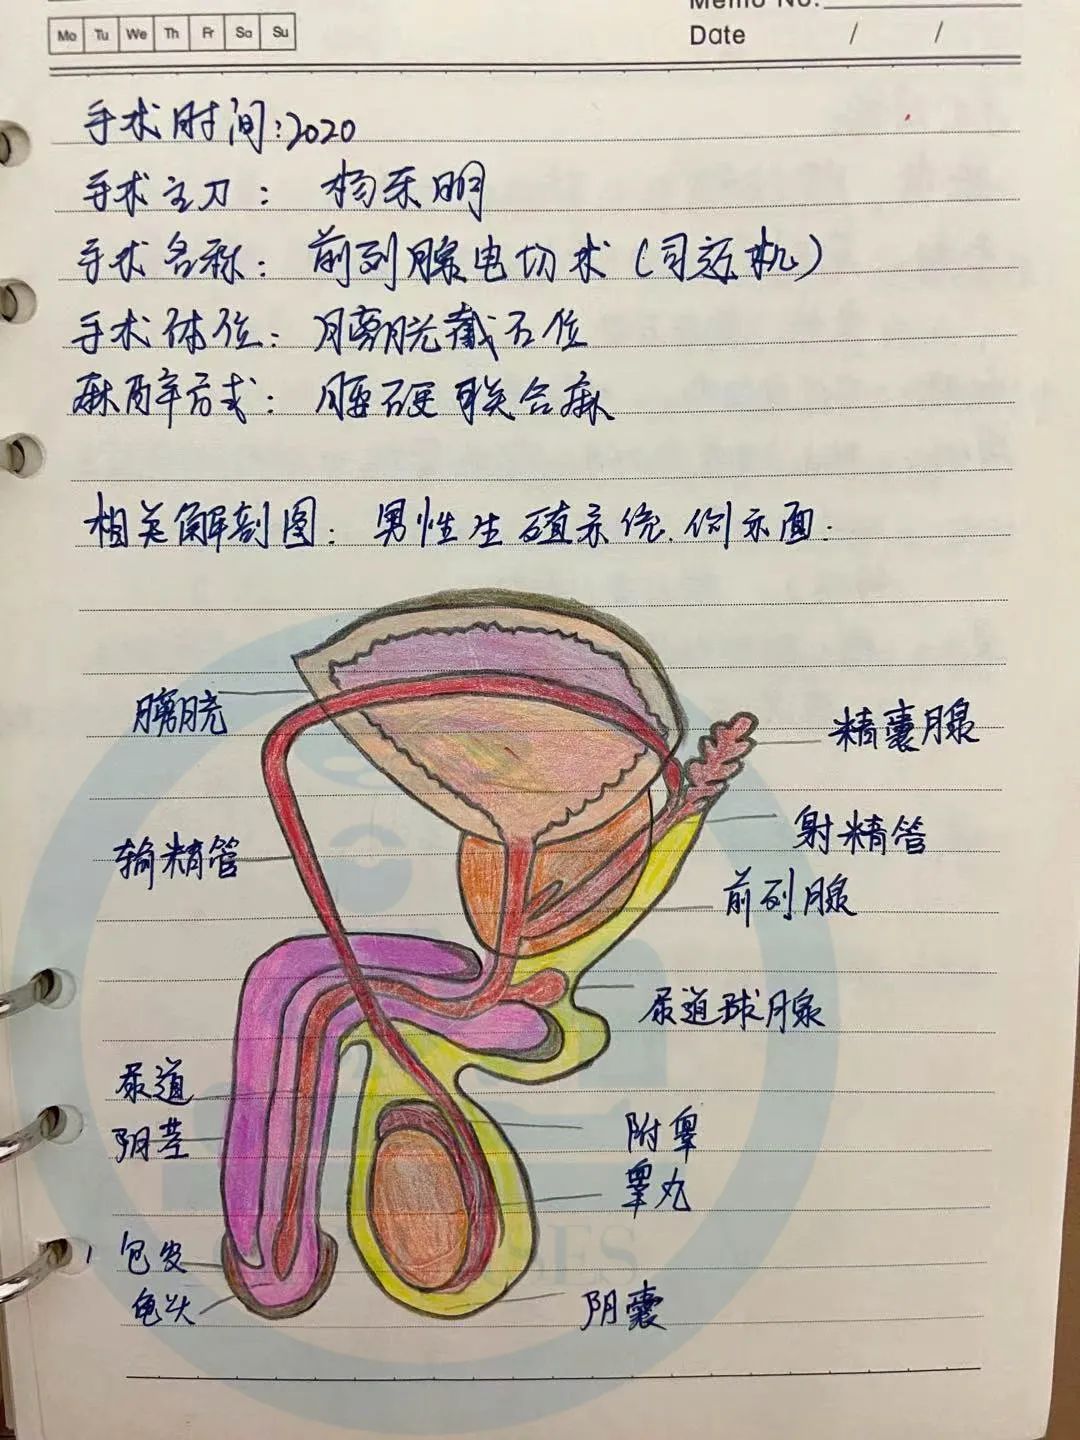 Memo No.
Mo Tu We Th Fr Sa Su
Date / /
手术时间:2020
手术主刀: 杨荣明
手术名称: 前列腺电切术(司迈机)
手术体位: 膀胱截石位
麻醉方式: 腰硬联合麻
相关解剖图: 男性生殖系统.侧示面:
膀胱
精囊腺
射精管
输精管
前列腺
尿道球腺
尿道
阴茎
附睾
睾丸
包皮
龟头
阴囊
SES